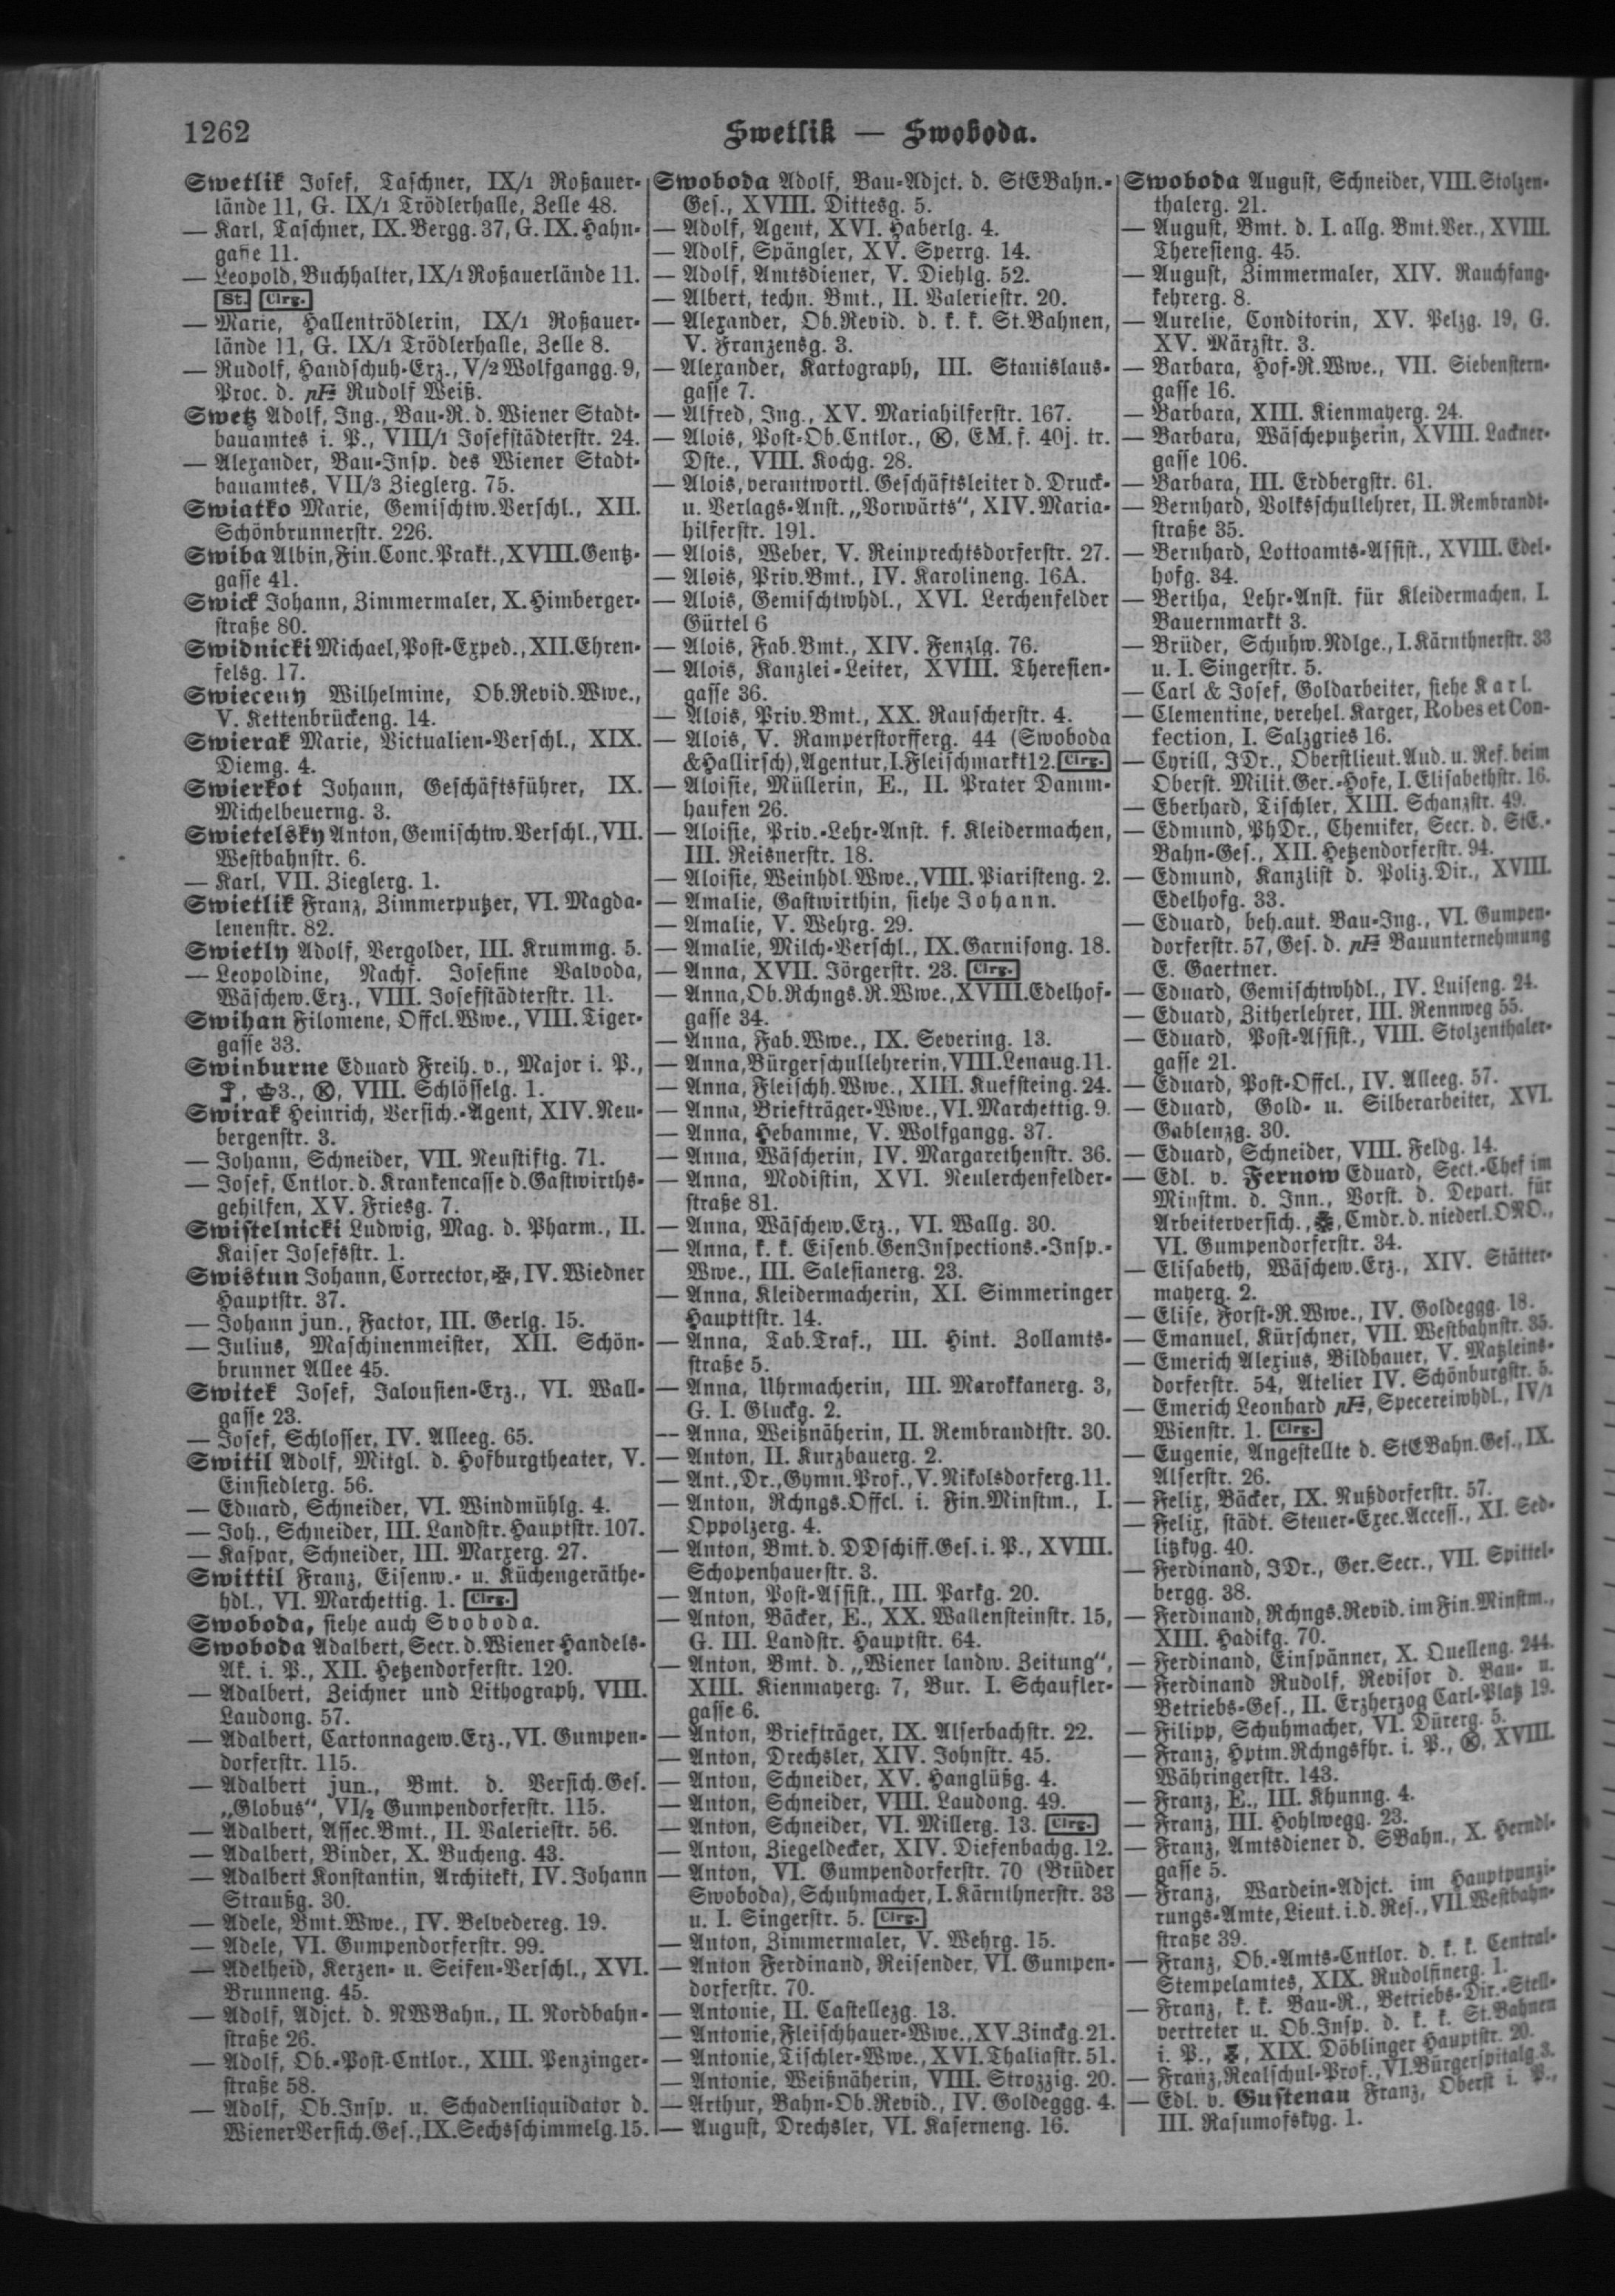 1262
Swetlik — Swoboda.
Swetlik Josef, Taschner, IX/1 Roßauer-
lände 11, G. IX/1 Trödlerhalle, Zelle 48.
— Karl, Taschner, IX. Bergg. 37, G. IX. Hahn-
gasse 11.
— Leopold, Buchhalter, IX/1 Roßauerlände 11.
St. Clrg.
— Marie, Hallentrödlerin, IX/1 Roßauer-
lände 11, G. IX/1 Trödlerhalle, Zelle 8.
— Rudolf, Handschuh-Erz., V/2 Wolfgangg. 9,
Proc. d. Rudolf Weiß.
Swetz Adolf, Ing., Bau-R. d. Wiener Stadt-
bauamtes i. P., VIII/1 Josefstädterstr. 24.
— Alexander, Bau-Insp. des Wiener Stadt-
bauamtes, VII/3 Zieglerg. 75.
Swiatko Marie, Gemischtw.Verschl., XII.
Schönbrunnerstr. 226.
Swiba Albin, Fin.Conc.Prakt., XVIII. Gentz-
gasse 41.
Swick Johann, Zimmermaler, X. Himberger-
straße 80.
Swidnicki Michael, Post-Exped., XII. Ehren-
felsg. 17.
Swieceny Wilhelmine, Ob.Revid.Wwe.,
V. Kettenbrückeng. 14.
Swierak Marie, Victualien-Verschl., XIX.
Diemg. 4.
Swierkot Johann, Geschäftsführer, IX.
Michelbeuerng. 3.
Swietelsky Anton, Gemischtw.Verschl., VII.
Westbahnstr. 6.
— Karl, VII. Zieglerg. 1.
Swietlik Franz, Zimmerputzer, VI. Magda-
lenenstr. 82.
Swietly Adolf, Vergolder, III. Krummg. 5.
— Leopoldine, Nachf. Josefine Valvoda,
Wäschew.Erz., VIII. Josefstädterstr. 11.
Swihan Filomene, Offcl.Wwe., VIII. Tiger-
gasse 33.
Swinburne Eduard Freih. v., Major i. P.,
3., Ⓚ, VIII. Schlösselg. 1.
Swirak Heinrich, Versich.-Agent, XIV. Neu-
bergenstr. 3.
— Johann, Schneider, VII. Neustiftg. 71.
— Josef, Cntlor. d. Krankencasse d. Gastwirths-
gehilfen, XV. Friesg. 7.
Swistelnicki Ludwig, Mag. d. Pharm., II.
Kaiser Josefsstr. 1.
Swistun Johann, Corrector, IV. Wiedner
Hauptstr. 37.
— Johann jun., Factor, III. Gerlg. 15.
— Julius, Maschinenmeister, XII. Schön-
brunner Allee 45.
Switek Josef, Jalousien-Erz., VI. Wall-
gasse 23.
— Josef, Schlosser, IV. Alleeg. 65.
Switil Adolf, Mitgl. d. Hofburgtheater, V.
Einsiedlerg. 56.
— Eduard, Schneider, VI. Windmühlg. 4.
— Joh., Schneider, III. Landstr. Hauptstr. 107.
— Kaspar, Schneider, III. Marxerg. 27.
Swittil Franz, Eisenw.- u. Küchengeräthe-
hdl., VI. Marchettig. 1. Clrg.
Swoboda, siehe auch Svoboda.
Swoboda Adalbert, Secr. d. Wiener Handels-
Ak. i. P., XII. Hetzendorferstr. 120.
— Adalbert, Zeichner und Lithograph, VIII.
Laudong. 57.
— Adalbert, Cartonnagew.Erz., VI. Gumpen-
dorferstr. 115.
— Adalbert jun., Bmt. d. Versich.Ges.
„Globus“, VI/2 Gumpendorferstr. 115.
— Adalbert, Assec.Bmt., II. Valeriestr. 56.
— Adalbert, Binder, X. Bucheng. 43.
— Adalbert Konstantin, Architekt, IV. Johann
Straußg. 30.
— Adele, Bmt.Wwe., IV. Belvedereg. 19.
— Adele, VI. Gumpendorferstr. 99.
— Adelheid, Kerzen- u. Seifen-Verschl., XVI.
Brunneng. 45.
— Adolf, Adjct. d. NWBahn., II. Nordbahn-
straße 26.
— Adolf, Ob.-Post-Cntlor., XIII. Penzinger-
straße 58.
— Adolf, Ob.Insp. u. Schadenliquidator d.
Wiener Versich.Ges., IX. Sechsschimmelg. 15.
Swoboda Adolf, Bau-Adjct. d. StEBahn.-
Ges., XVIII. Dittesg. 5.
— Adolf, Agent, XVI. Haberlg. 4.
— Adolf, Spängler, XV. Sperrg. 14.
— Adolf, Amtsdiener, V. Diehlg. 52.
— Albert, techn. Bmt., II. Valeriestr. 20.
— Alexander, Ob.Revid. d. k. k. St.Bahnen,
V. Franzensg. 3.
— Alexander, Kartograph, III. Stanislaus-
gasse 7.
— Alfred, Ing., XV. Mariahilferstr. 167.
— Alois, Post-Ob.Cntlor., Ⓚ, EM. f. 40j. tr.
Dste., VIII. Kochg. 28.
— Alois, verantwortl. Geschäftsleiter d. Druck-
u. Verlags-Anst. „Vorwärts“, XIV. Maria-
hilferstr. 191.
— Alois, Weber, V. Reinprechtsdorferstr. 27.
— Alois, Priv.Bmt., IV. Karolineng. 16A.
— Alois, Gemischtwhdl., XVI. Lerchenfelder
Gürtel 6
— Alois, Fab.Bmt., XIV. Fenzlg. 76.
— Alois, Kanzlei-Leiter, XVIII. Theresien-
gasse 36.
— Alois, Priv.Bmt., XX. Rauscherstr. 4.
— Alois, V. Ramperstorfferg. 44 (Swoboda
& Hallirsch), Agentur, I. Fleischmarkt 12. Clrg.
— Aloisie, Müllerin, E., II. Prater Damm-
haufen 26.
— Aloisie, Priv.-Lehr-Anst. f. Kleidermachen,
III. Reisnerstr. 18.
— Aloisie, Weinhdl.Wwe., VIII. Piaristeng. 2.
— Amalie, Gastwirthin, siehe Johann.
— Amalie, V. Wehrg. 29.
— Amalie, Milch-Verschl., IX. Garnisong. 18.
— Anna, XVII. Jörgerstr. 23. Clrg.
— Anna, Ob.Rchngs.R.Wwe., XVIII. Edelhof-
gasse 34.
— Anna, Fab.Wwe., IX. Severing. 13.
— Anna, Bürgerschullehrerin, VIII. Lenaug. 11.
— Anna, Fleischh.Wwe., XIII. Kuefsteing. 24.
— Anna, Briefträger-Wwe., VI. Marchettig. 9.
— Anna, Hebamme, V. Wolfgangg. 37.
— Anna, Wäscherin, IV. Margarethenstr. 36.
— Anna, Modistin, XVI. Neulerchenfelder-
straße 81.
— Anna, Wäschew.Erz., VI. Wallg. 30.
— Anna, k. k. Eisenb.GenInspections.-Insp.-
Wwe., III. Salesianerg. 23.
— Anna, Kleidermacherin, XI. Simmeringer
Haupttstr. 14.
— Anna, Tab.Traf., III. Hint. Zollamts-
straße 5.
— Anna, Uhrmacherin, III. Marokkanerg. 3,
G. I. Gluckg. 2.
— Anna, Weißnäherin, II. Rembrandtstr. 30.
— Anton, II. Kurzbauerg. 2.
— Ant., Dr., Gymn.Prof., V. Nikolsdorferg. 11.
— Anton, Rchngs.Offcl. i. Fin.Minstm., I.
Oppolzerg. 4.
— Anton, Bmt. d. DDschiff.Ges. i. P., XVIII.
Schopenhauerstr. 3.
— Anton, Post-Assist., III. Parkg. 20.
— Anton, Bäcker, E., XX. Wallensteinstr. 15,
G. III. Landstr. Hauptstr. 64.
— Anton, Bmt. d. „Wiener landw. Zeitung“,
XIII. Kienmayerg. 7, Bur. I. Schaufler-
gasse 6.
— Anton, Briefträger, IX. Alserbachstr. 22.
— Anton, Drechsler, XIV. Johnstr. 45.
— Anton, Schneider, XV. Hanglüßg. 4.
— Anton, Schneider, VIII. Laudong. 49.
— Anton, Schneider, VI. Millerg. 13. Clrg.
— Anton, Ziegeldecker, XIV. Diefenbachg. 12.
— Anton, VI. Gumpendorferstr. 70 (Brüder
Swoboda), Schuhmacher, I. Kärnthnerstr. 33
u. I. Singerstr. 5. Clrg.
— Anton, Zimmermaler, V. Wehrg. 15.
— Anton Ferdinand, Reisender, VI. Gumpen-
dorferstr. 70.
— Antonie, II. Castellezg. 13.
— Antonie, Fleischhauer-Wwe., XV. Zinckg. 21.
— Antonie, Tischler-Wwe., XVI. Thaliastr. 51.
— Antonie, Weißnäherin, VIII. Strozzig. 20.
— Arthur, Bahn-Ob.Revid., IV. Goldeggg. 4.
— August, Drechsler, VI. Kaserneng. 16.
Swoboda August, Schneider, VIII. Stolzen-
thalerg. 21.
— August, Bmt. d. I. allg. Bmt.Ver., XVIII.
Theresieng. 45.
— August, Zimmermaler, XIV. Rauchfang-
kehrerg. 8.
— Aurelie, Conditorin, XV. Pelzg. 19, G.
XV. Märzstr. 3.
— Barbara, Hof-R.Wwe., VII. Siebenstern-
gasse 16.
— Barbara, XIII. Kienmayerg. 24.
— Barbara, Wäscheputzerin, XVIII. Lackner-
gasse 106.
— Barbara, III. Erdbergstr. 61.
— Bernhard, Volksschullehrer, II. Rembrandt-
straße 35.
— Bernhard, Lottoamts-Assist., XVIII. Edel-
hofg. 34.
— Bertha, Lehr-Anst. für Kleidermachen, I.
Bauernmarkt 3.
— Brüder, Schuhw.Ndlge., I. Kärnthnerstr. 33
u. I. Singerstr. 5.
— Carl & Josef, Goldarbeiter, siehe Karl.
— Clementine, verehel. Karger, Robes et Con-
fection, I. Salzgries 16.
— Cyrill, JDr., Oberstlieut.Aud. u. Ref. beim
Oberst. Milit.Ger.-Hofe, I. Elisabethstr. 16.
— Eberhard, Tischler, XIII. Schanzstr. 49.
— Edmund, PhDr., Chemiker, Secr. d. StE.-
Bahn-Ges., XII. Hetzendorferstr. 94.
— Edmund, Kanzlist d. Poliz.Dir., XVIII.
Edelhofg. 33.
— Eduard, beh.aut. Bau-Ing., VI. Gumpen-
dorferstr. 57, Ges. d. Bauunternehmung
E. Gaertner.
— Eduard, Gemischtwhdl., IV. Luiseng. 24.
— Eduard, Zitherlehrer, III. Rennweg 55.
— Eduard, Post-Assist., VIII. Stolzenthaler-
gasse 21.
— Eduard, Post-Offcl., IV. Alleeg. 57.
— Eduard, Gold- u. Silberarbeiter, XVI.
Gablenzg. 30.
— Eduard, Schneider, VIII. Feldg. 14.
— Edl. v. Fernow Eduard, Sect.-Chef im
Minstm. d. Inn., Vorst. d. Depart. für
Arbeiterversich., Cmdr. d. niederl. ONO.,
VI. Gumpendorferstr. 34.
— Elisabeth, Wäschew.Erz., XIV. Stätter-
mayerg. 2.
— Elise, Forst-R.Wwe., IV. Goldeggg. 18.
— Emanuel, Kürschner, VII. Westbahnstr. 35.
— Emerich Alexius, Bildhauer, V. Matzleins-
dorferstr. 54, Atelier IV. Schönburgstr. 5.
— Emerich Leonhard, Specereiwhdl., IV/1
Wienstr. 1. Clrg.
— Eugenie, Angestellte d. StEBahn.Ges., IX.
Alserstr. 26.
— Felix, Bäcker, IX. Nußdorferstr. 57.
— Felix, städt. Steuer-Exec.Access., XI. Sed-
litzkyg. 40.
— Ferdinand, JDr., Ger.Secr., VII. Spittel-
bergg. 38.
— Ferdinand, Rchngs.Revid. im Fin.Minstm.,
XIII. Hadikg. 70.
— Ferdinand, Einspänner, X. Quelleng. 244.
— Ferdinand Rudolf, Revisor d. Bau- u.
Betriebs-Ges., II. Erzherzog Carl-Platz 19.
— Filipp, Schuhmacher, VI. Dürerg. 5.
— Franz, Hptm.Rchngsfhr. i. P., Ⓚ, XVIII.
Währingerstr. 143.
— Franz, E., III. Khunng. 4.
— Franz, III. Hohlwegg. 23.
— Franz, Amtsdiener d. SBahn., X. Herndl-
gasse 5.
— Franz, Wardein-Adjct. im Hauptpunzi-
rungs-Amte, Lieut. i. d. Res., VII. Westbahn-
straße 39.
— Franz, Ob.-Amts-Cntlor. d. k. k. Central-
Stempelamtes, XIX. Rudolfinerg. 1.
— Franz, k. k. Bau-R., Betriebs-Dir.-Stell-
vertreter u. Ob.Insp. d. k. k. St.Bahnen
i. P., XIX. Döblinger Hauptstr. 20.
— Franz, Realschul-Prof., VI. Bürgerspitalg. 3.
— Edl. v. Gustenau Franz, Oberst i. P.,
III. Rasumofskyg. 1.